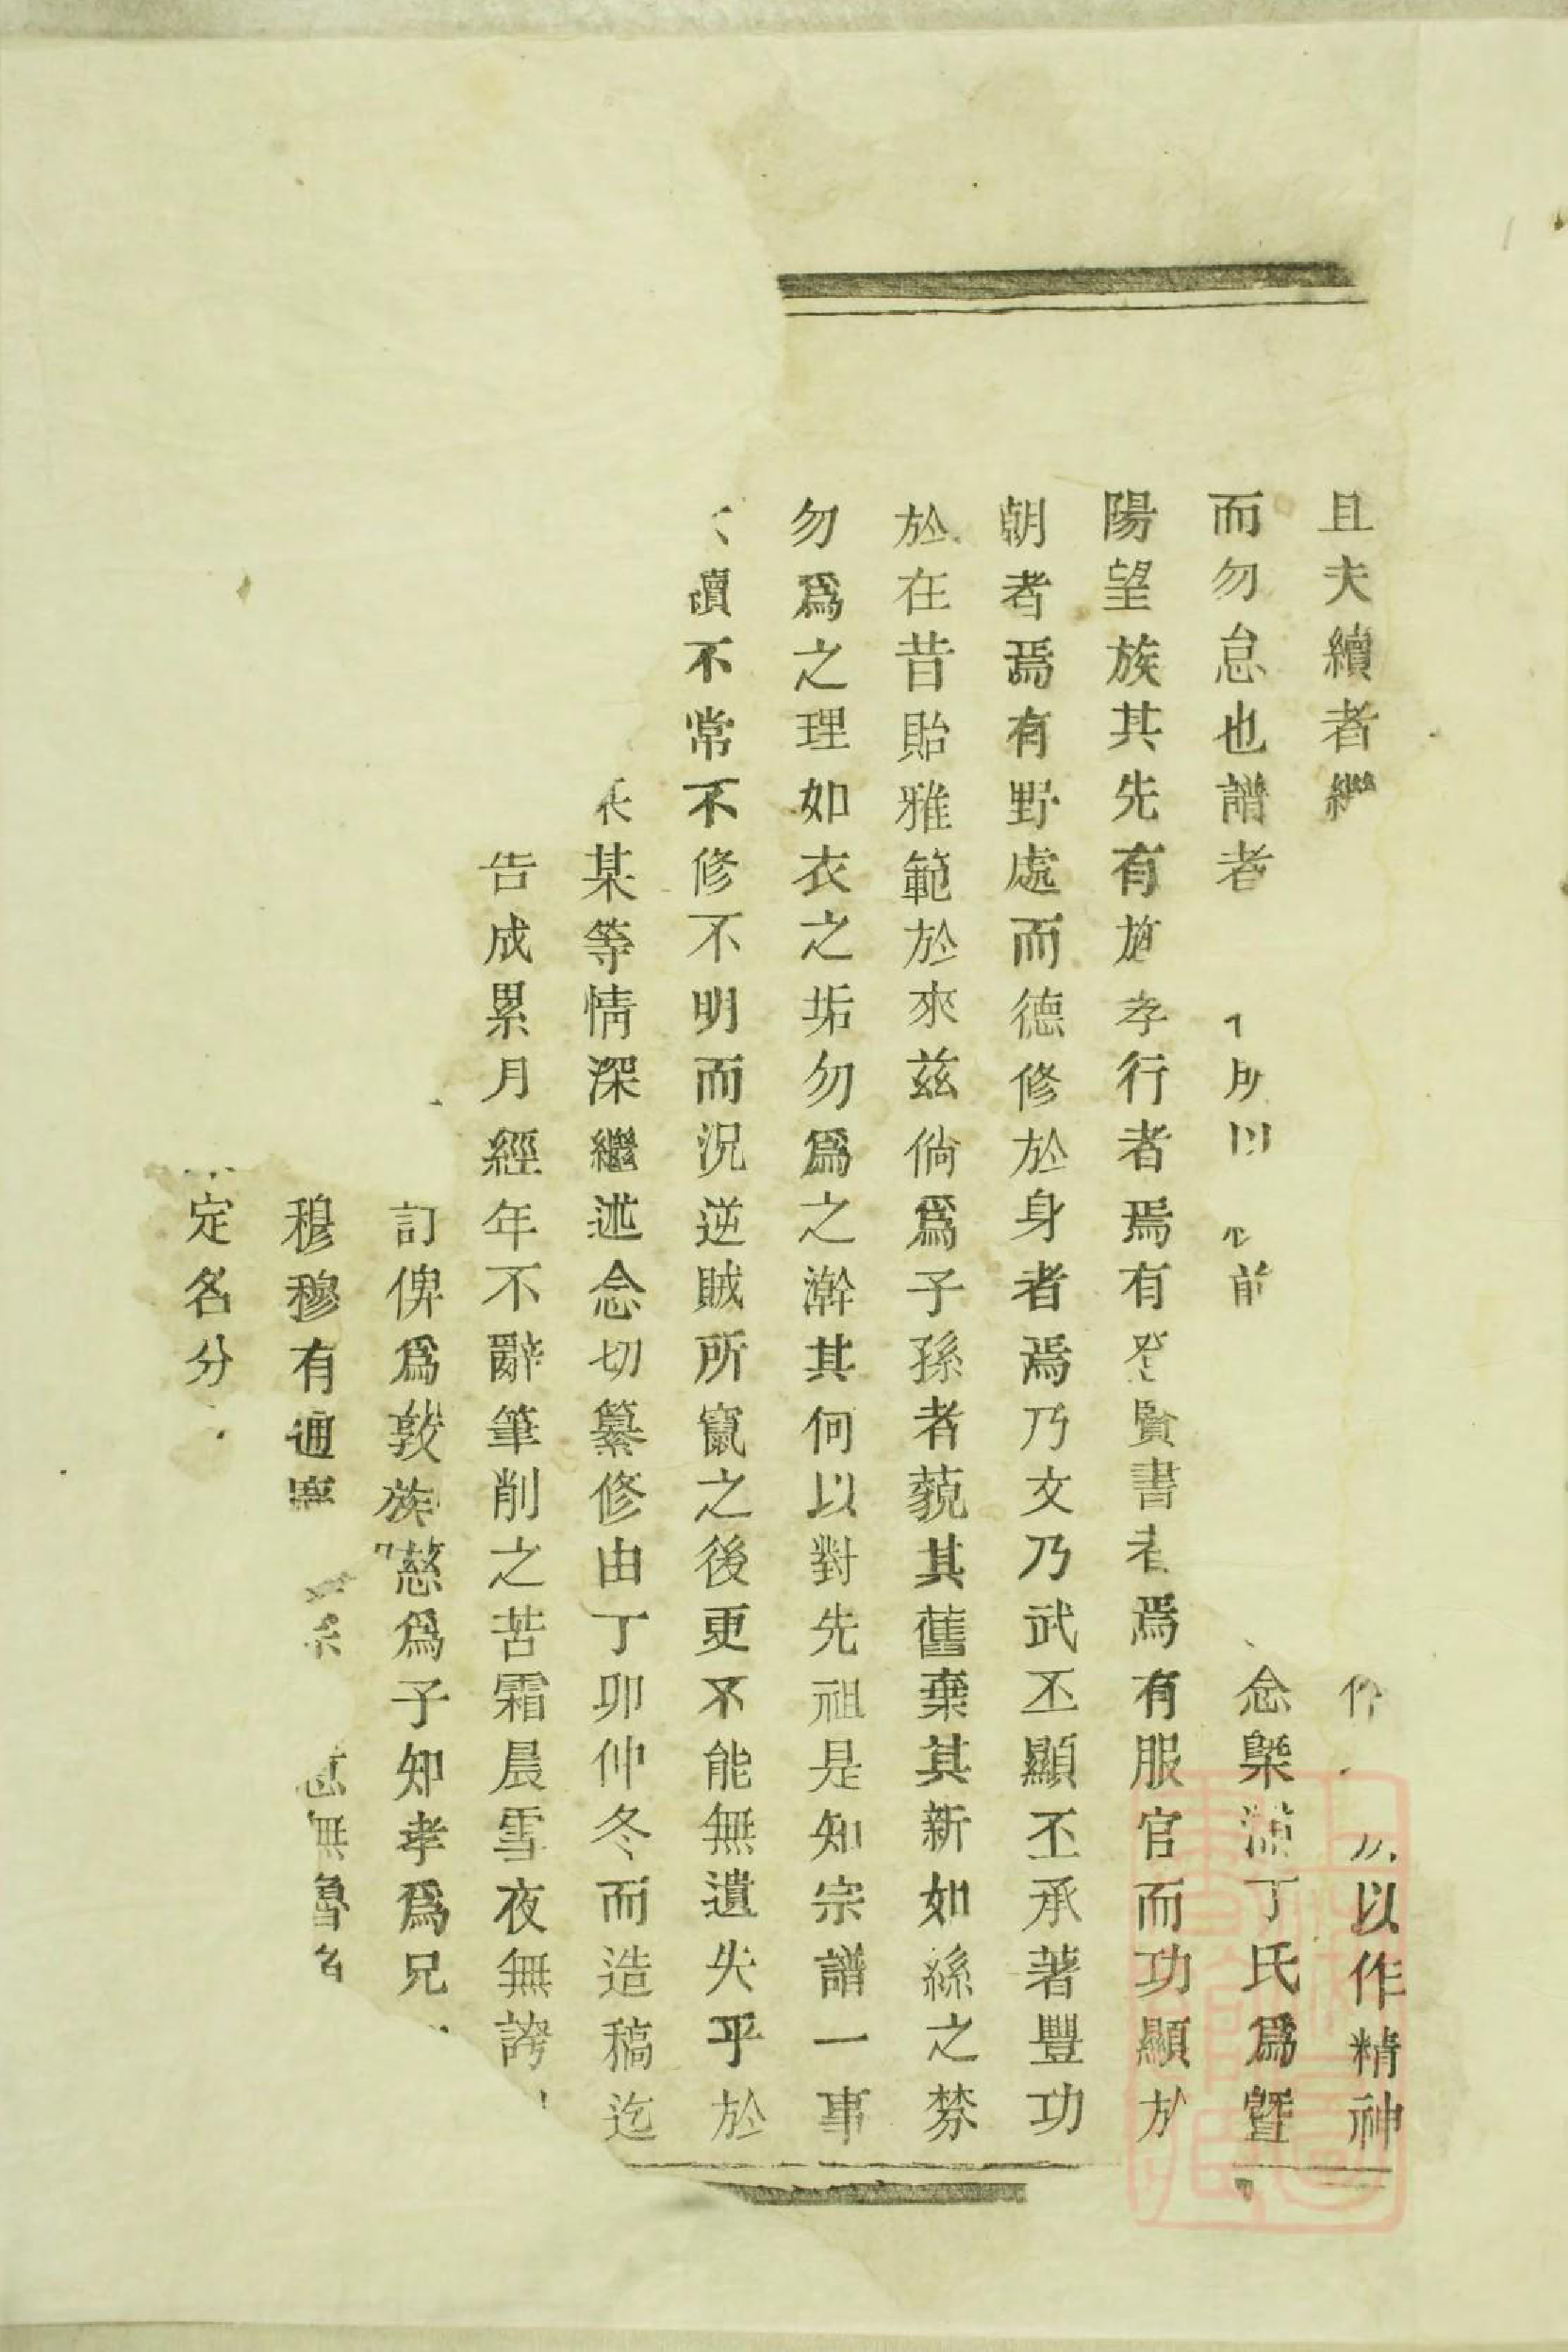 且夫續者繼作以作精神
而勿怠也譜者所以前念槼源丁氏爲暨
陽望族其先有施孝行者焉有登賢書者焉有服官而功顯於
朝者焉有野處而德修於身者焉乃文乃武丕顯丕承著豐功
於在昔貽雅範於來茲倘爲子孫者藐其舊棄其新如絲之棼
勿爲之理如衣之垢勿爲之澣其何以對先祖是知宗譜一事
不讀不常不修不明而況逆賊所竄之後更不能無遺失乎於
某等情深繼述念切纂修由丁卯仲冬而造稿迄
告成累月經年不辭筆削之苦霜晨雪夜無誇
訂俾爲敦族慈爲子知孝爲兄
穆穆有通系無魯
定名分